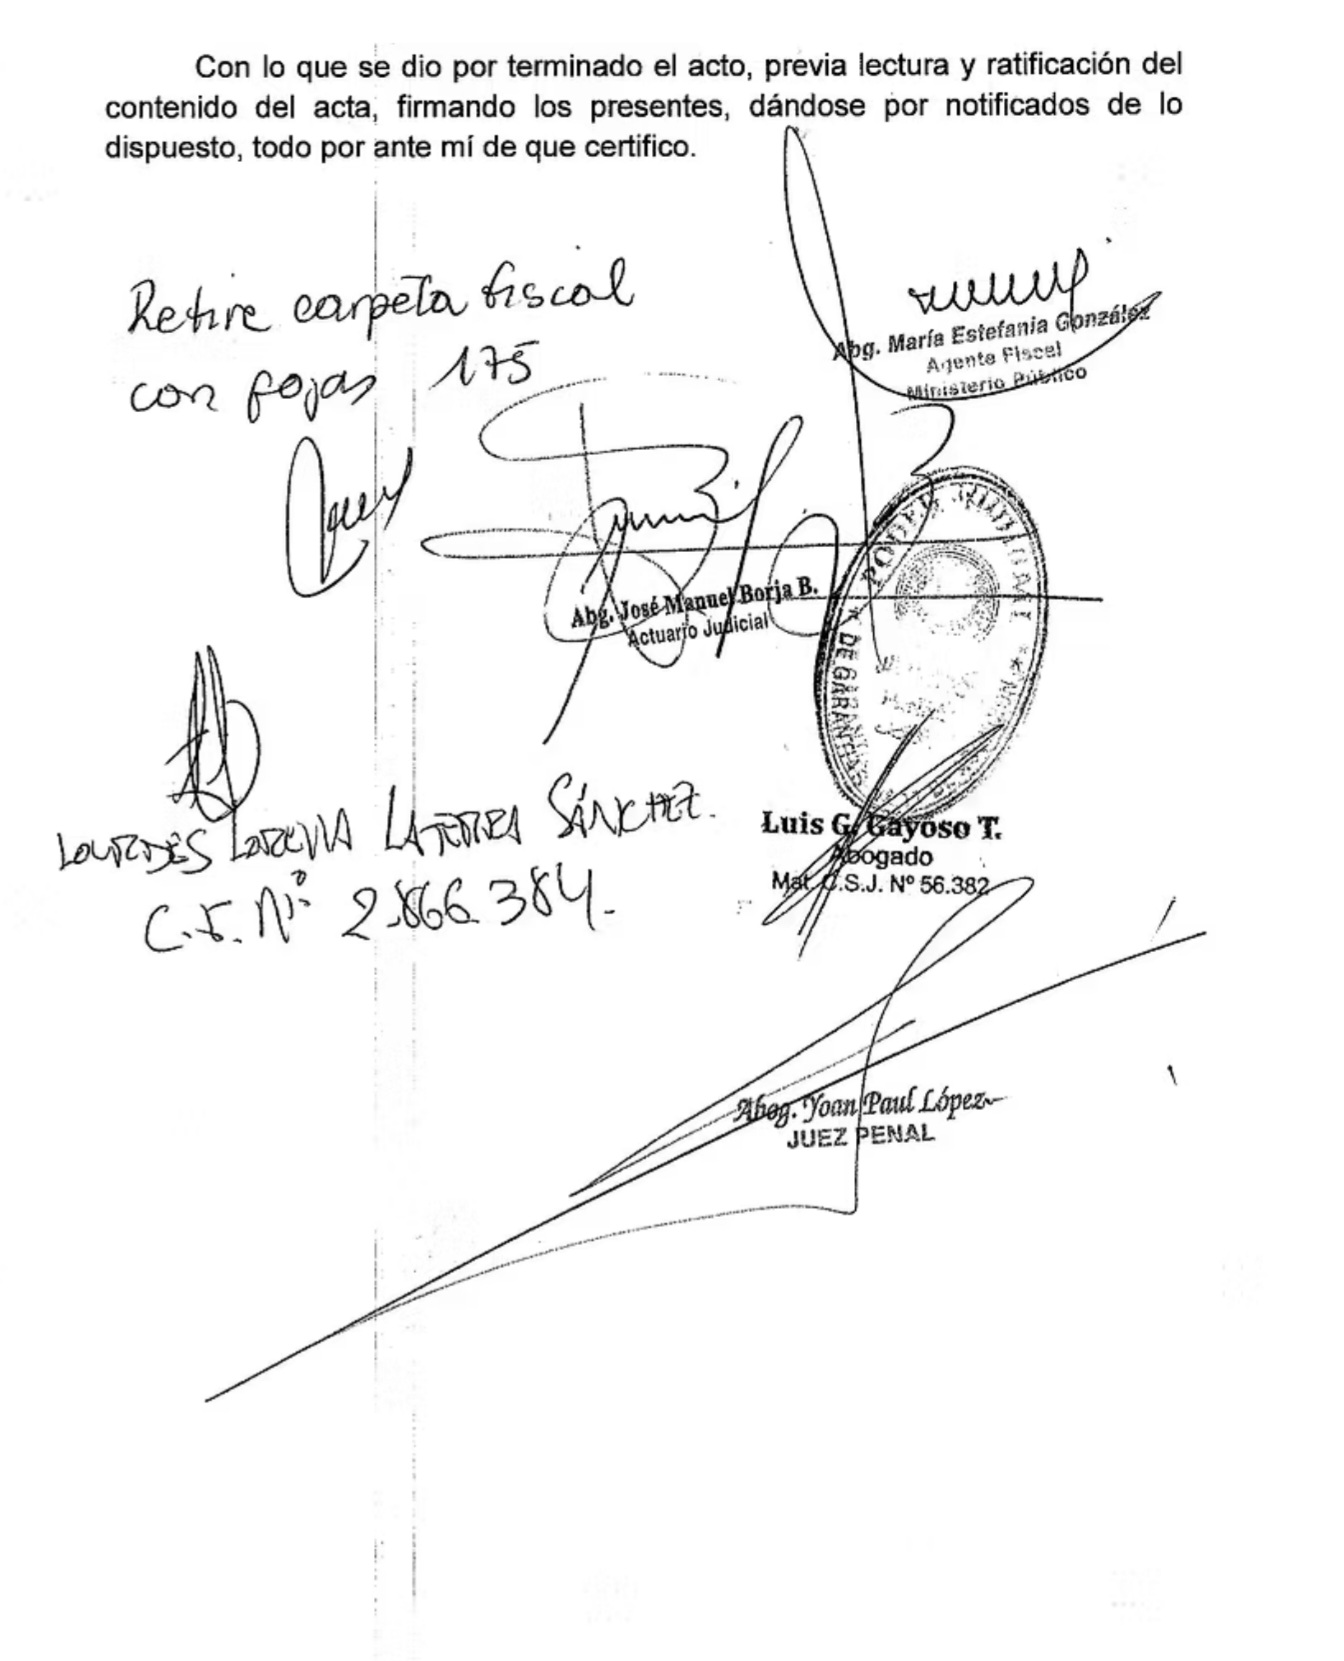 Con lo que se dio por terminado el acto, previa lectura y ratificación del
contenido del acta, firmando los presentes, dándose por notificados de lo
dispuesto, todo por ante mí de que certifico.
Retire carpeta fiscal
con fojas 175
Abg. María Estefanía González
Agente Fiscal
Ministerio Público
Abg. José Manuel Borja B.
Actuario Judicial
PODER JUDICIAL
DE GARANTIAS
LOURDES LORENA LATERRA SÁNCHEZ.
C.I. Nº 2.866.384.
Luis G. Gayoso T.
Abogado
Mat. C.S.J. Nº 56.382
Abog. Yoan Paul López
JUEZ PENAL